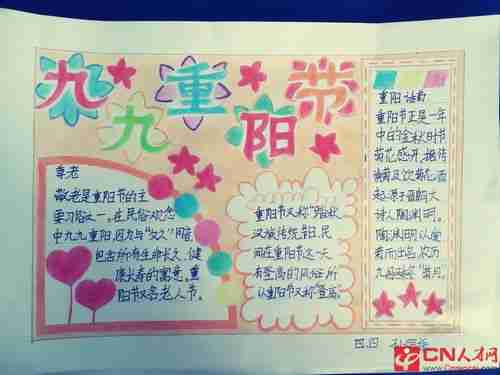 九九重阳节
尊老
敬老是重阳节的主
要习俗之一。在民俗观念
中九九重阳,因为与“久久”同音
包含所有生命长久、健
康长寿的寓意。重
阳节又名老人节。
重阳节又称“踏秋”
汉族传统节日,民
间在重阳节这一天
有登高的风俗,所
以重阳节又称“登高”
重阳
重阳节正是一年
中的金秋时节
菊花盛开,据传
赏菊及饮菊花酒
起源于晋朝大
诗人陶渊明。
陶渊明以
而出名,农历
九月
四.四
CN人才网